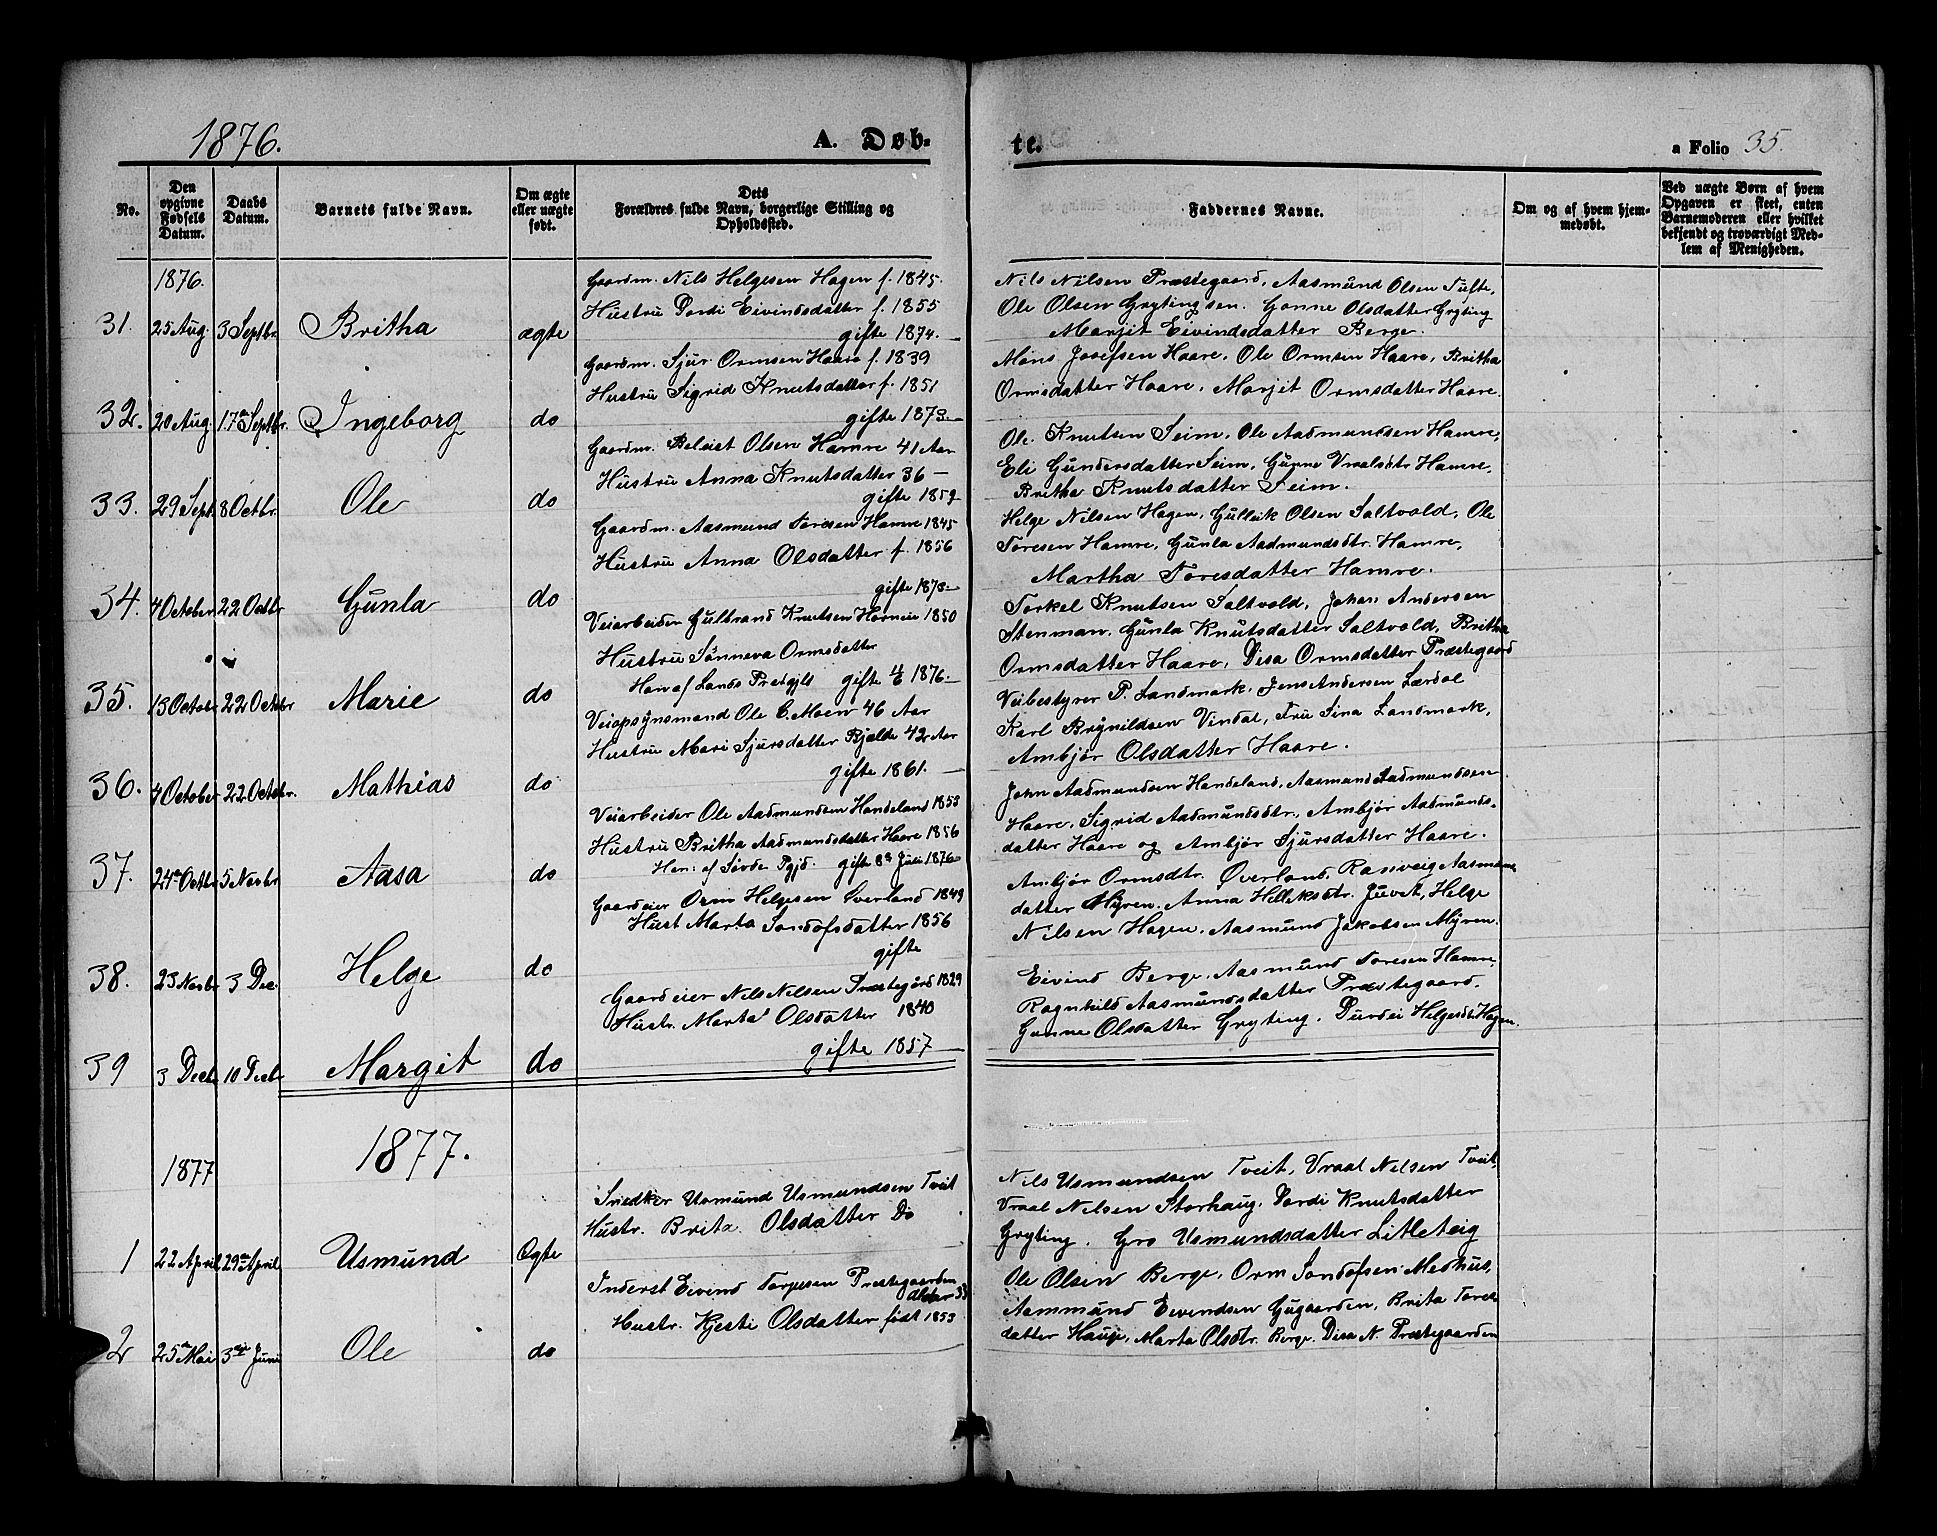 1876.
A. Døb-
te.
a Folio 35.
No.
Den opgivne Fødsels Datum.
Daabs Datum.
Barnets fulde Navn.
Om ægte eller uægte født.
Dets Forældres fulde Navn, borgerlige Stilling og Opholdssted.
Faddernes Navne.
Om og af hvem hjemmedøbt.
Ved uægte Børn af hvem Opgaven er skeet, enten Barnemoderen eller hvilket bekjendt og troværdigt Medlem af Menigheden.
1876.
31. 25 Aug. 3 Septbr. Britha ægte
Gaardm. Nils Helgesen Hagen f. 1845.
Hustru Dordi Eivindsdatter f. 1855
gifte 1874.
Nils Nilsen Præstegaard, Aasmund Olsen Tufte,
Ole Olsen Gryting sen. Gonne Olsdatter Gryting
Marjit Eivindsdatter Berge.
32. 20 Aug. 17de Septbr. Ingeborg do
Gaardm. Sjur Ormsen Haare f. 1839
Hustru Sigrid Knutsdatter f. 1851
gifte 1873.
Mons Josefsen Haare, Ole Ormsen Haare, Britha
Ormsdatter Haare, Marjit Ormsdatter Haare.
33. 29 Sept. 8 Octbr. Ole do
Gaardm. Olsen Hamre 41 Aar
Hustru Anna Knutsdatter 36 —
gifte 1859
Ole Knutsen Seim, Ole Aadmundsen Hamre,
Eli Gundersdatter Seim, Gunne Vraalsdtr Hamre,
Britha Knutsdatter Seim.
34. 4 October 22 Octbr Gunla do
Gaardm. Aasmund Toresen Hamre 1845
Hustru Anna Olsdatter f. 1856
gifte 1873
Helge Nilsen Hagen, Gullik Olsen Saltvold, Ole
Toresen Hamre, Gunla Aadmundsdtr. Hamre,
Martha Toresdatter Hamre.
35. 13 Octobr 22 Octbr Marie do
Veiarbeider Gulbrand Knutsen 1850
Hustru Sønneva Ormsdatter
Han af Lands Prstgjls gifte 1876.
Torkel Knutsen Saltvold, Johan Andersen
Stenman, Gunla Knutsdatter Saltvold, Britha
Ormsdatter Haare, Disa Ormsdatter Præstegaard
36. 4 October 22 Octobr. Mathias do
Veiopsynsmand Ole C. Moen 46 Aar
Hustru Mari Sjursdatter Bjelde 42 Aar
gifte 1861.
Veibestyrer P. Landmark, Jens Andersen Lærdal
Karl Brynildsen Vindal, Fru Sina Landmark,
Ambjør Olsdatter Haare.
37. 24de Octbr 5 Novbr Aasa do
Veiarbeider Ole Aadmundsen Handeland 1853
Hustru Britha Aadmundsdatter Haare 1856
Han: af Søvde Pgjd. gifte 8de Juli 1876
John Aadmundsen Handeland, Aasmund Aadmundsen
Haare, Sigrid Aadmundsdtr., Ambjør Aadmunds-
datter Haare og Ambjør Sjursdatter Haare.
38. 23 Novbr 3 Dec. Helge do
Gaardeier Orm Helgesen Øverland 1849
Hust Marta Sondofsdatter 1856
gifte
Ambjør Ormsdtr. Øverland, Ranveig Aasmunds
datter Myren. Anna Helliksdtr. Juvet, Helge
Nilsen Hagen, Aasmund Jakobsen Myren.
39 3 Decb 10 Decb Margit do
Gaardeier Nils Nilsen Præstegård 1829
Hustr. Marta Olsdatter 1840
gifte 1857
Eivind Berge, Aasmund Toresen Hamre,
Ragnhild Aasmundsdatter Præstegaard,
Gunne Olsdatter Gryting. Durdei Helgesdtr Hagen.
1877.
1877
1 22 April 29de April Usmund Ægte
Snedker Usmund Usmundsen Tveit
Hustr. Brita Olsdatter Do
Nils Usmundsen Tveit, Vraal Nilsen Tveit,
Vraal Nilsen Storhaug, Dordi Knutsdatter
Gryting. Gro Usmundsdatter Litleteig
2 25de Mai 3die Juni Ole do
Inderst Eivind Torgesen Præstegaarden
Alder 33
Hustr. Kjesti Olsdatter født 1853
Ole Olsen Berge, Orm Sondofsen Medhus,
Aammund Eivindsen Gugaarden, Brita Tores
datter Hauje, Marta Olsdtr. Berge. Disa N. Præstegaarden